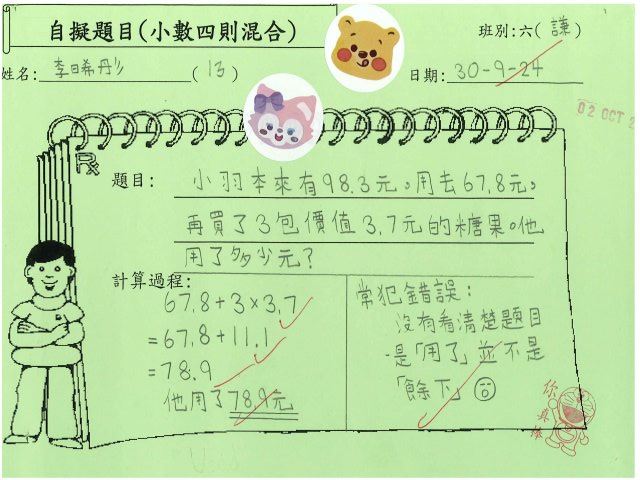 自擬題目(小數四則混合)
班別:六(謙)
姓名:李日希彤(13)
日期:30-9-24
02 OCT 2
題目:小羽本來有98.3元。用去67.8元。
再買了3包價值3.7元的糖果。他
用了多少元?
計算過程:
67.8+3×3.7
=67.8+11.1
=78.9
他用了78.9元
常犯錯誤:
沒有看清楚題目
是「用了」並不是
「餘下」
你真棒